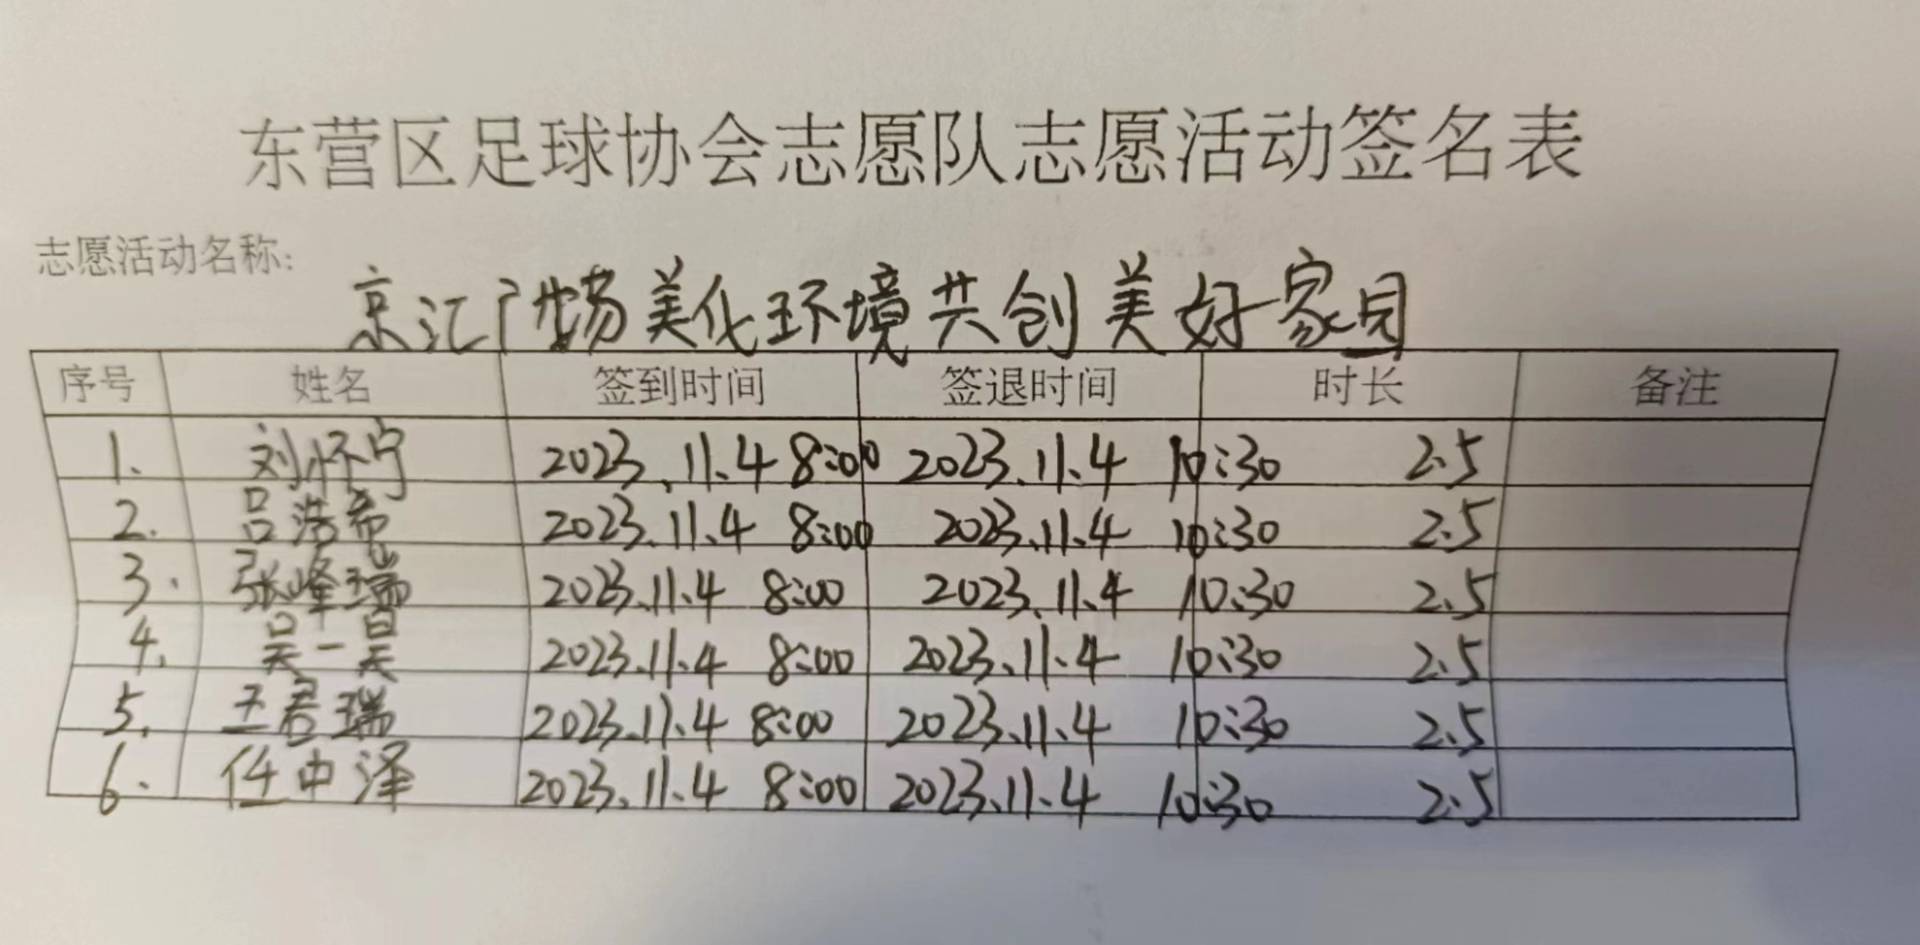 东营区足球协会志愿队志愿活动签名表
志愿活动名称:
京汇广场美化环境共创美好家园
序号 姓名 签到时间 签退时间 时长 备注
1. 刘怀宁 2023.11.4 8:00 2023.11.4 10:30 2.5
2. 吕浩希 2023.11.4 8:00 2023.11.4 10:30 2.5
3. 张峰瑞 2023.11.4 8:00 2023.11.4 10:30 2.5
4. 吴一昊 2023.11.4 8:00 2023.11.4 10:30 2.5
5. 王君瑞 2023.11.4 8:00 2023.11.4 10:30 2.5
6. 任中泽 2023.11.4 8:00 2023.11.4 10:30 2.5